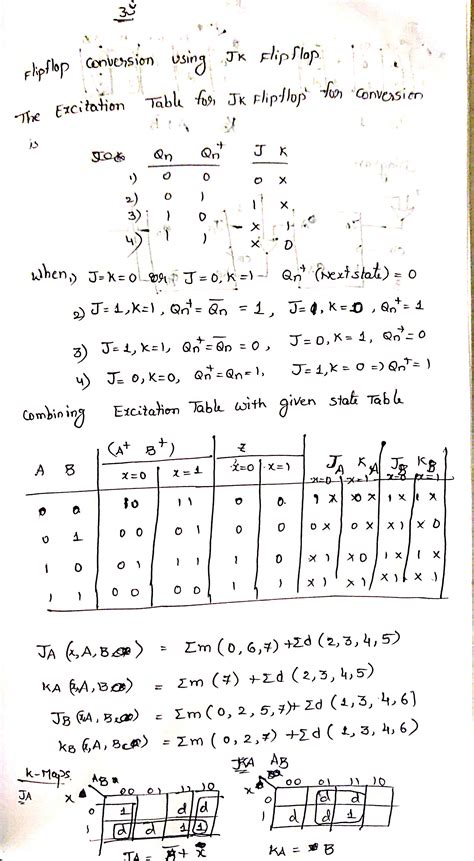 35
Flipflop Conversion using JK Flipflop
The Excitation Table for JK Flipflop for Conversion
is
Qn Qn⁺ J K
1) 0 0 0 x
2) 0 1 1 x
3) 1 0 x 1
4) 1 1 x 0
When, 1) J=K=0 or J=0, K=1 - Qn⁺ (Next state) = 0
2) J=1, K=1, Qn⁺ = Q̅n = 1, J=1, K=0, Qn⁺ = 1
3) J=1, K=1, Qn⁺ = Q̅n = 0, J=0, K=1, Qn⁺ = 0
4) J=0, K=0, Qn⁺ = Qn = 1, J=1, K=0 => Qn⁺ = 1
Combining Excitation Table with given state Table
(A⁺ B⁺) z
A B x=0 x=1 x=0 x=1 JA KA JB KB
x=0 x=1 x=0 x=1
0 0 10 11 0 0 1x 0x 1x
0 1 00 01 0 0 0x 0x x1 x0
1 0 01 11 1 0 x1 x0 1x 1x
1 1 00 00 1 1 x1 x1 x1 x1
JA (x, A, B) = Σm (0, 6, 7) + Σd (2, 3, 4, 5)
KA (x, A, B) = Σm (7) + Σd (2, 3, 4, 5)
JB (x, A, B) = Σm (0, 2, 5, 7) + Σd (1, 3, 4, 6]
KB (x, A, B) = Σm (0, 2, 7) + Σd (1, 3, 4, 6)
K-Maps
JA x AB 00 01 11 10
0 1 d d
1 d d 1 1
JA = B̅ + x
KA AB
x 00 01 11 10
0 d d
1 d d 1
KA = B